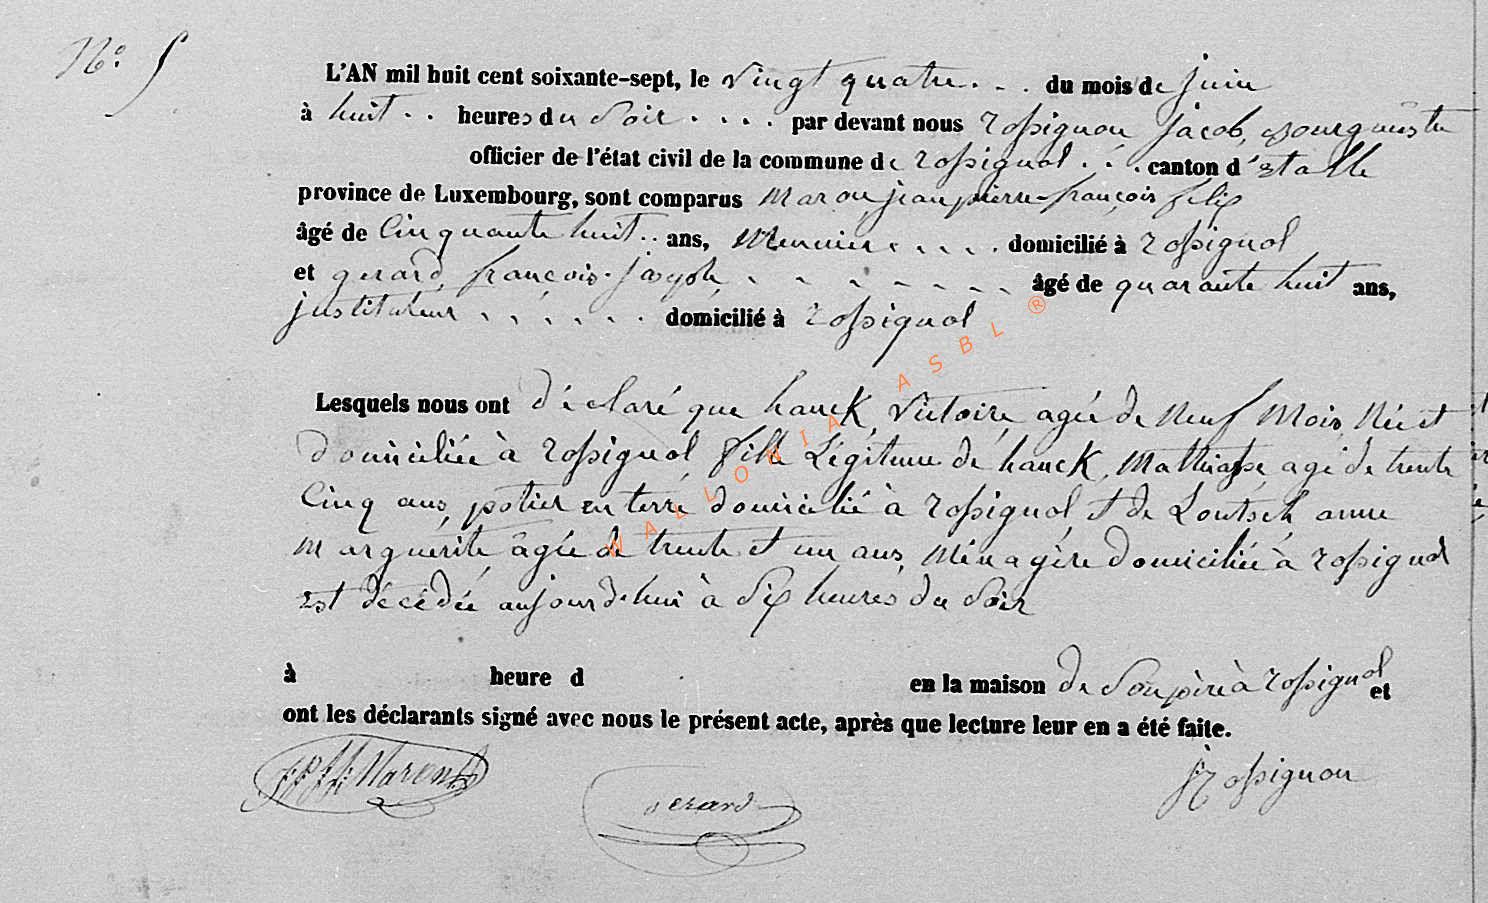 N° 5
L'AN mil huit cent soixante-sept, le vingt quatre du mois de juin
à huit heures du Soir par devant nous rossignon Jacob, Bourgmestre
officier de l'état civil de la commune de rossignol canton d'Etalle
province de Luxembourg, sont comparus jean pierre françois felix
âgé de Cinquante huit ans, Meunier domicilié à rossignol
et gerard, françois joseph âgé de quarante huit ans,
justituteur domicilié à rossignol
Lesquels nous ont déclaré que hanck, Victoire agée de Neuf Mois, Née et
domiciliée à rossignol fille Légitime de hanck, Mathias, agé de trente
Cinq ans, potier en terre domicilié à rossignol et de Loutsch anne
Marguerite, âgée de trente et un ans, Ménagère domiciliée à rossignol
Est décédée aujourd'hui à Six heures du Soir
à heure d en la maison de Son père à rossignol et
ont les déclarants signé avec nous le présent acte, après que lecture leur en a été faite.
gerard
J Rossignon
WALLONIA ASBL ®